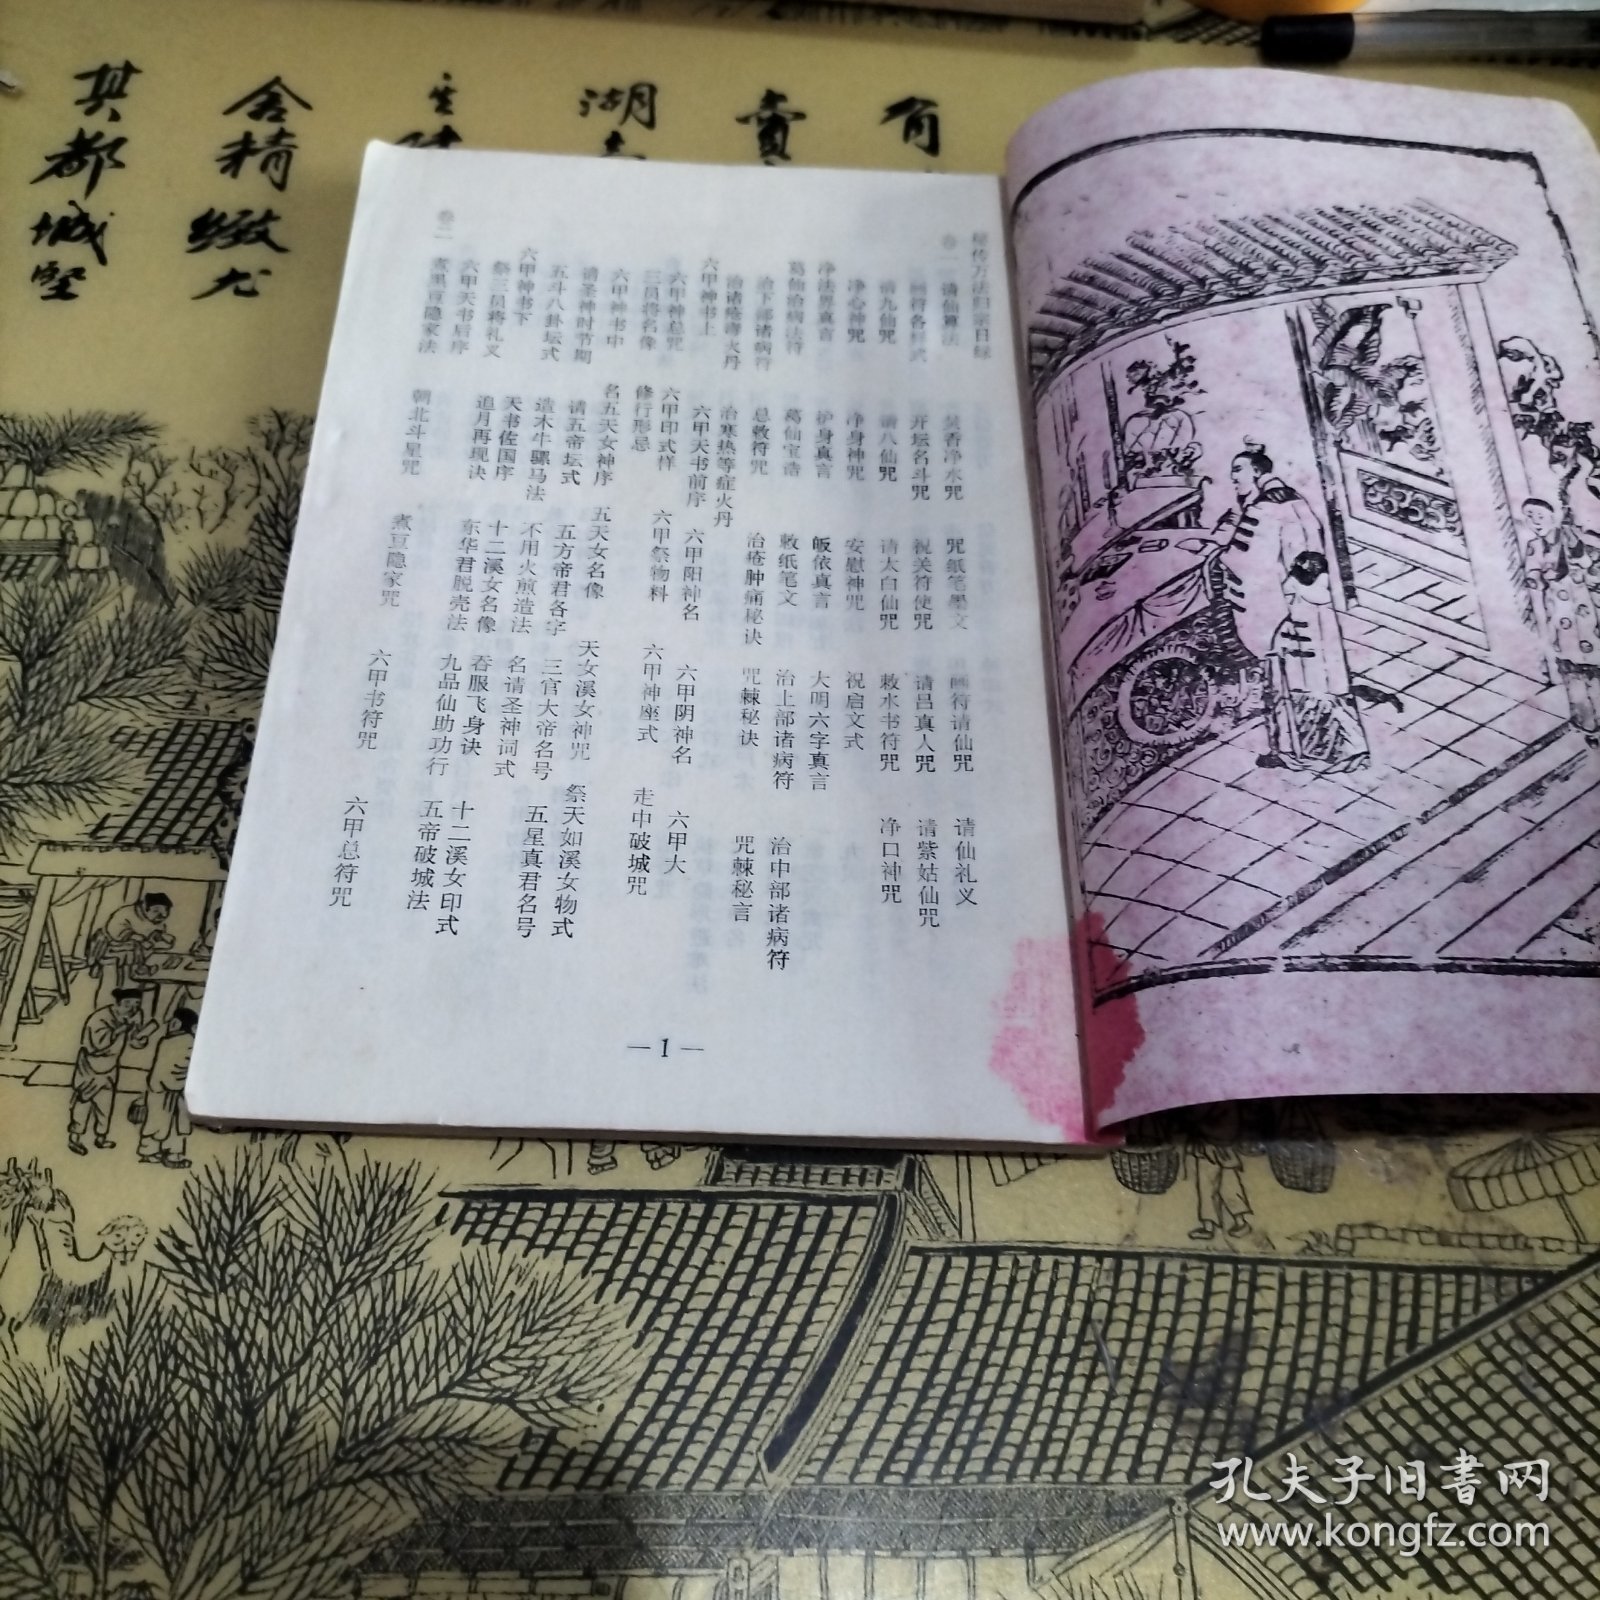 秘传万法归宗目录
卷一 请仙算法 焚香净水咒 咒纸笔墨文 画符请仙咒 请仙礼义
画符各样式 开坛名斗咒 祝关符使咒 请吕真人咒 请紫姑仙咒
请九仙咒 请八仙咒 请太白仙咒 敕水书符咒 净口神咒
净心神咒 净身神咒 安慰神咒 祝启文式
净法界真言 护身真言 皈依真言 大明六字真言
葛仙治病法符 葛仙宝诰 敕纸笔文 治上部诸病符 治中部诸病符
治下部诸病符 总敕符咒 治疮肿痛秘诀 咒棘秘诀 咒棘秘言
治诸疮毒火丹 治寒热等症火丹
六甲神书上 六甲天书前序 六甲阳神名 六甲阴神名 六甲大
六甲神总咒 六甲印式样 六甲祭物料 六甲神座式 走中破城咒
三员将名像 修行形忌
六甲神书中 名五天女神序 五天女名像 天女溪女神咒 祭天如溪女物式
请圣神时节期 请五帝坛式 五方帝君各字 三官大帝名号 五星真君名号
五斗八卦坛式 造木牛骡马法 不用火煎造法 名请圣神词式
六甲神书下 天书佐国序 十二溪女名像 吞服飞身诀 十二溪女印式
祭三员将礼义 追月再现诀 东华君脱壳法 九品仙助功行 五帝破城法
六甲天书后序
卷二 煮黑豆隐家法 朝北斗星咒 煮豆隐家咒 六甲书符咒 六甲总符咒
— 1 —
湖
舍精
缀
其都城
孔夫子旧书网
www.kongfz.com